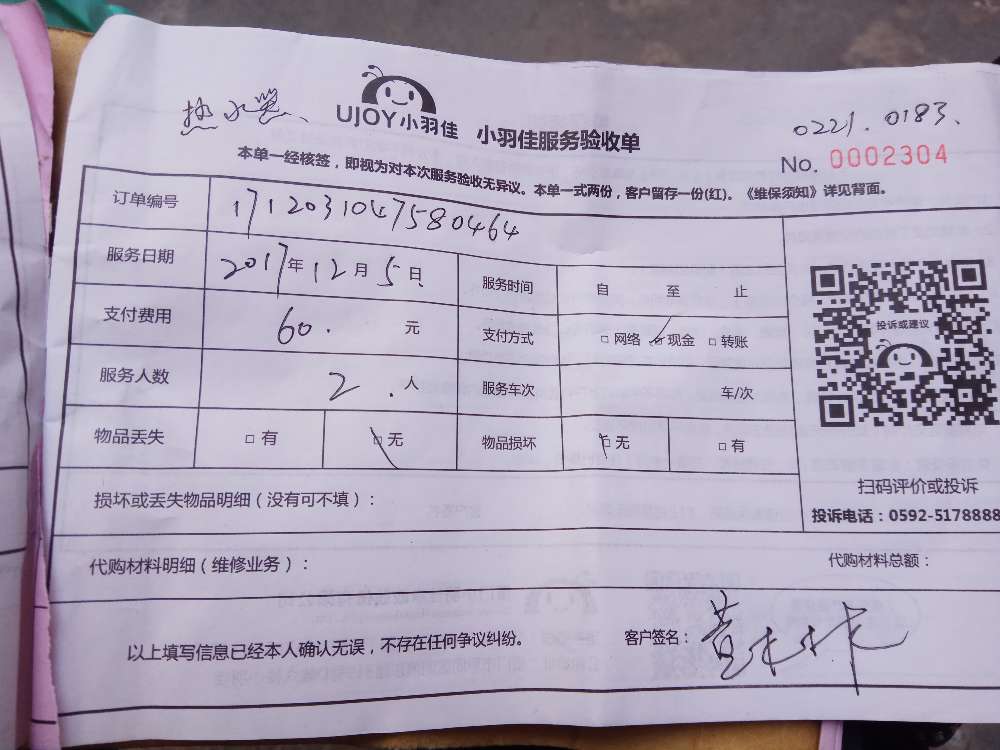 热水器、
UJOY小羽佳 小羽佳服务验收单
0221.0183.
No. 0002304
本单一经核签，即视为对本次服务验收无异议。本单一式两份，客户留存一份(红)。《维保须知》详见背面。
订单编号 1712031047580464
服务日期 2017年12月5日 服务时间 自 至 止
支付费用 60. 元 支付方式 □网络 ☑现金 □转账
服务人数 2. 人 服务车次 车/次
物品丢失 □有 ☑无 物品损坏 ☑无 □有
投诉或建议
扫码评价或投诉
投诉电话：0592-5178888
损坏或丢失物品明细（没有可不填）：
代购材料明细（维修业务）： 代购材料总额：
以上填写信息已经本人确认无误，不存在任何争议纠纷。 客户签名：